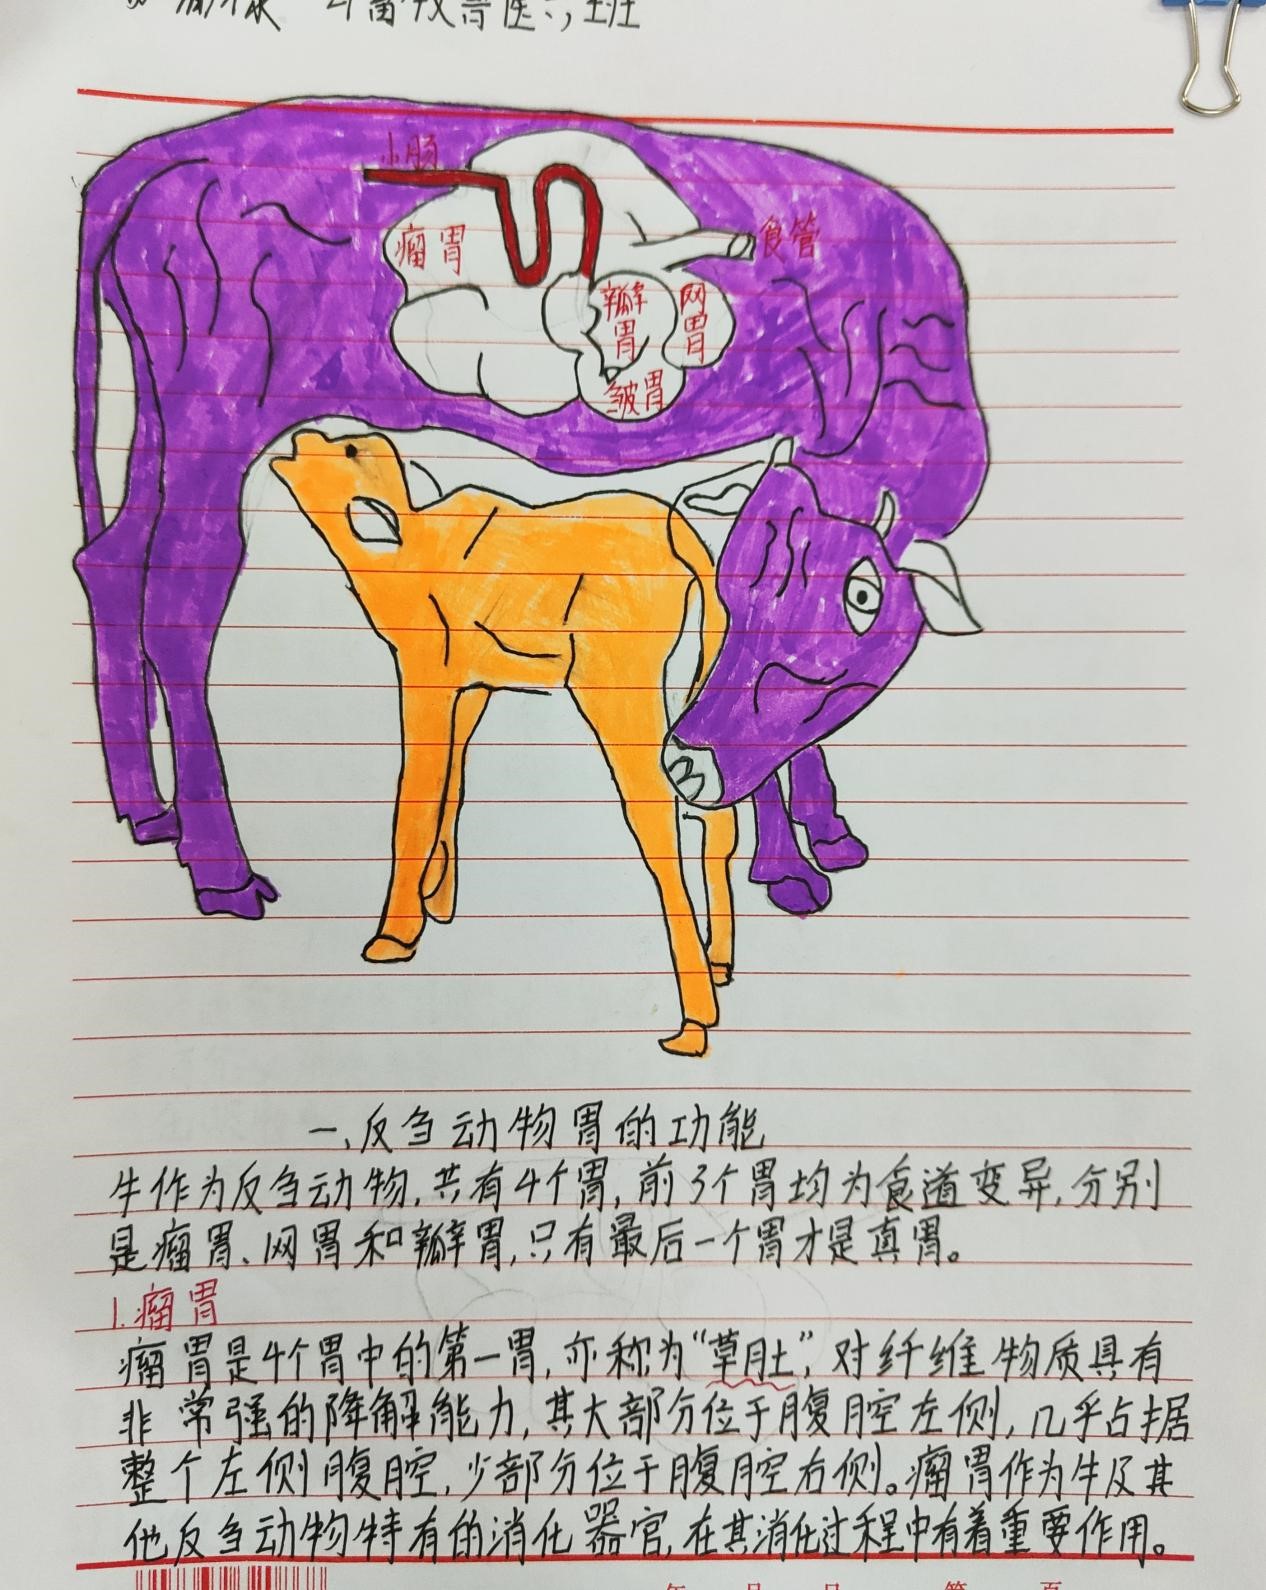 小肠
瘤胃
食管
瓣胃
网胃
皱胃
一、反刍动物胃的功能
牛作为反刍动物,共有4个胃,前3个胃均为食道变异,分别
是瘤胃、网胃和瓣胃,只有最后一个胃才是真胃。
1.瘤胃
瘤胃是4个胃中的第一胃,亦称为“草肚”,对纤维物质具有
非常强的降解能力,其大部分位于腹腔左侧,几乎占据
整个左侧腹腔,少部分位于腹腔右侧。瘤胃作为牛及其
他反刍动物特有的消化器官,在其消化过程中有着重要作用。
年 月 日 第 页